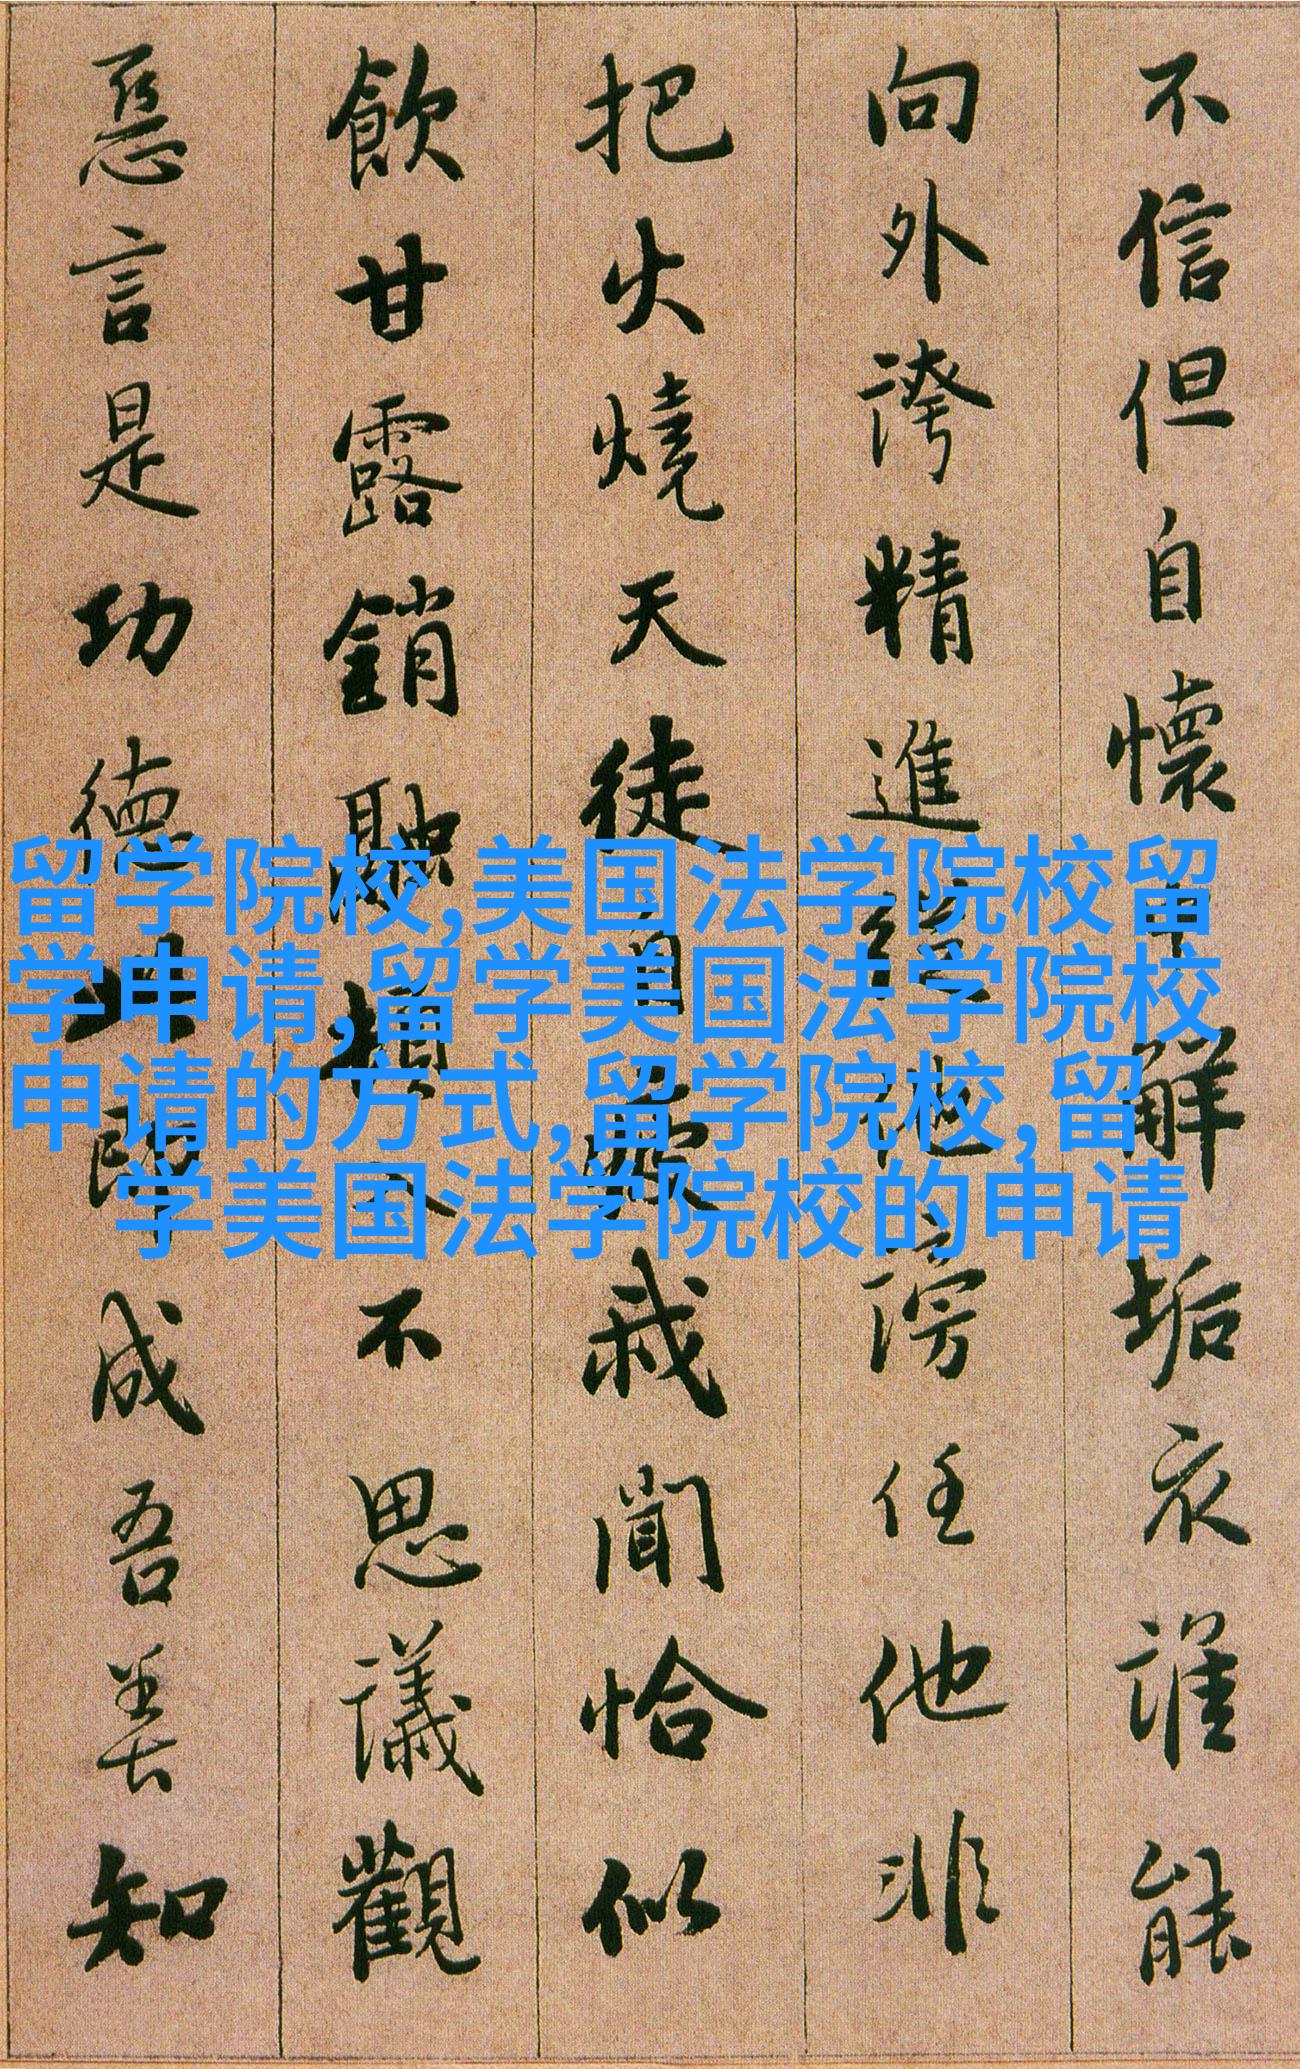 不信但自懷中解垢衣誰能
向外誇精進從他謗任他非
把火燒天徒自疲我聞恰似
飲甘露銷融頓入不思議觀
惡言是功德此即成吾善知
留学院校,美国法学院校留
学申请,留学美国法学院校
申请的方式,留学院校,留
学美国法学院校的申请